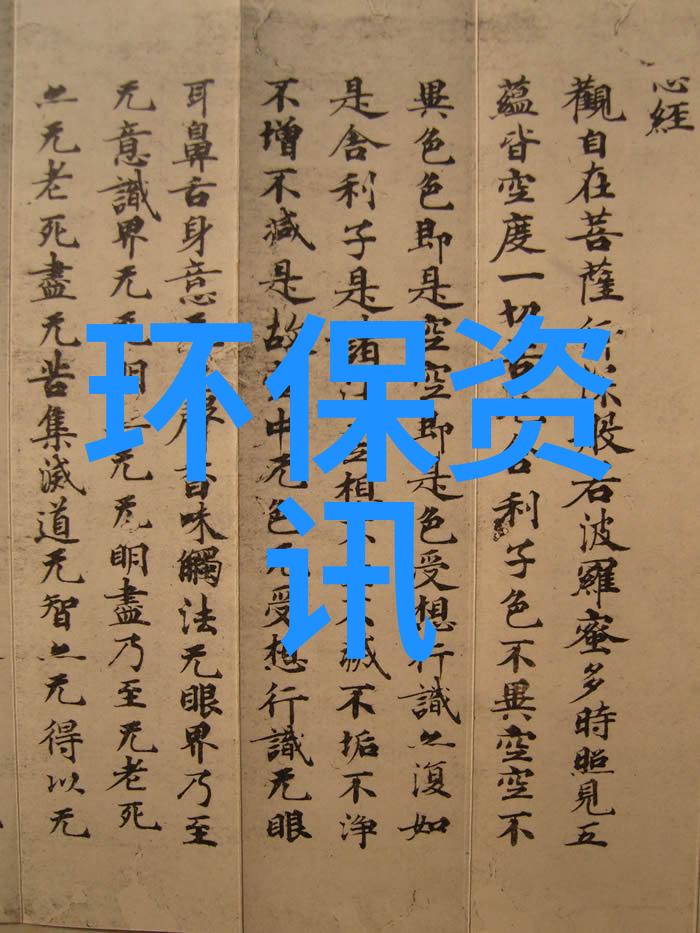 心經
觀自在菩薩行深般若波羅蜜多時照見五
蘊皆空度一切舍利子色不異空空不
異色色即是空空即是色受想行識亦復如
是舍利子是諸法空相不不滅不垢不淨
不增不減是故空中无色无受想行識无眼
耳鼻舌身意香味觸法无眼界乃至
无意識界无无明亦无无明盡乃至无老死
亦无老死盡无苦集滅道无智亦无得以无
环保资
讯